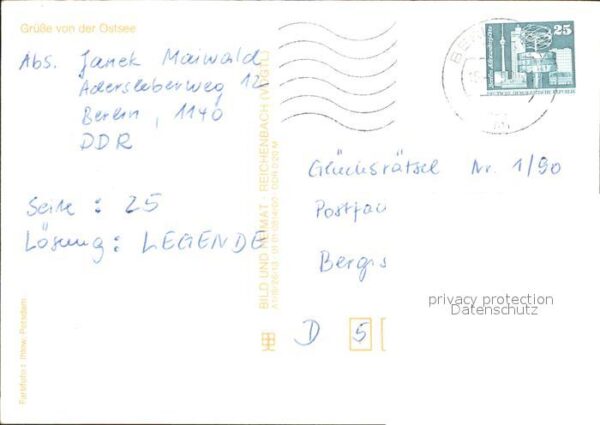 Grüße von der Ostsee
Abs. Janek Maiwald
Adersleberweg 12
Berlin, 1140
DDR
Seite : 25
Lösung : LEGENDE
Farbfoto: Ihlow, Potsdam
BILD UND HEIMAT · REICHENBACH (VOGTL)
25
DEUTSCHE DEMOKRATISCHE REPUBLIK
Glücksrätsel Nr. 1/90
Postfac
Bergis
D 5
privacy protection
Datenschutz